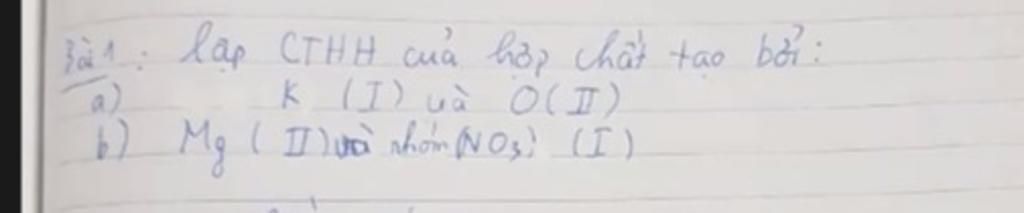 Bài 1: lập CTHH của hợp chất tạo bởi:
a) K (I) và O (II)
b) Mg (II) và nhóm (NO3) (I)